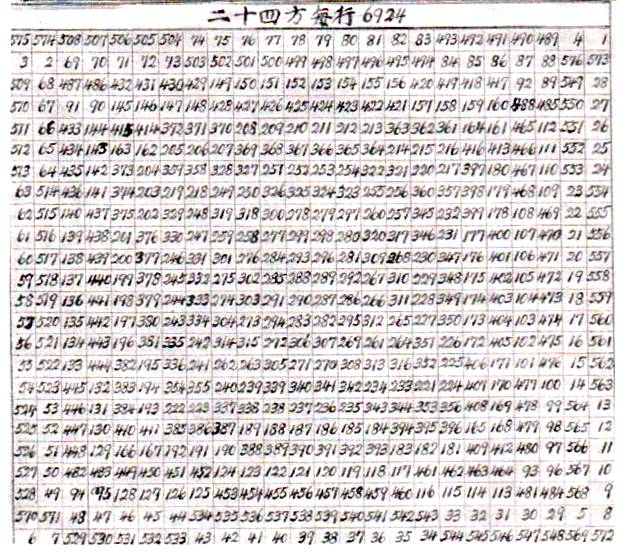 二十四方每行6924
575 574 508 507 506 505 504 74 75 76 77 78 79 80 81 82 83 493 492 491 490 489 4 1
3 2 69 70 71 72 73 503 502 501 500 499 498 497 496 495 494 84 85 86 87 88 576 573
509 68 487 486 432 431 430 429 149 150 151 152 153 154 155 156 420 419 418 417 92 89 549 28
510 67 91 90 145 146 147 148 428 427 426 425 424 423 422 421 157 158 159 160 488 485 550 27
511 66 433 144 415 414 372 371 370 208 209 210 211 212 213 363 362 361 164 161 465 112 551 26
512 65 434 143 163 162 205 206 207 369 368 367 366 365 364 214 215 216 416 413 466 111 552 25
513 64 435 142 373 204 359 358 328 327 251 252 253 254 322 321 220 217 397 180 467 110 553 24
63 514 436 141 374 203 219 218 249 250 326 325 324 323 255 256 360 357 398 179 468 109 23 554
62 515 140 437 375 202 329 248 319 318 300 278 279 297 260 257 345 232 399 178 108 469 22 555
61 516 139 438 201 376 330 247 259 258 277 299 298 280 320 317 346 231 177 400 107 470 21 556
60 517 138 439 200 377 246 331 301 276 284 293 296 281 309 268 230 347 176 401 106 471 20 557
59 518 137 440 199 378 245 332 275 302 285 288 289 292 267 310 229 348 175 402 105 472 19 558
58 519 136 441 198 379 244 333 274 303 291 290 287 286 266 311 228 349 174 403 104 473 18 559
57 520 135 442 197 380 243 334 304 273 294 283 282 295 312 265 227 350 173 404 103 474 17 560
56 521 134 443 196 381 335 242 314 315 272 306 307 269 261 264 351 226 172 405 102 475 16 561
55 522 133 444 382 195 336 241 262 263 305 271 270 308 313 316 352 225 406 171 101 476 15 562
54 523 445 132 383 194 354 355 240 239 339 340 341 342 234 233 221 224 407 170 477 100 14 563
524 53 446 131 384 193 222 223 337 338 238 237 236 235 343 344 353 356 408 169 478 99 564 13
525 52 447 130 410 411 385 386 387 189 188 187 186 185 184 394 395 396 165 168 479 98 565 12
526 51 448 129 166 167 192 191 190 388 389 390 391 392 393 183 182 181 409 412 480 97 566 11
527 50 482 483 449 450 451 452 124 123 122 121 120 119 118 117 461 462 463 464 93 96 567 10
528 49 94 95 128 127 126 125 453 454 455 456 457 458 459 460 116 115 114 113 481 484 568 9
570 571 48 47 46 45 44 534 535 536 537 538 539 540 541 542 543 33 32 31 30 29 5 8
6 7 529 530 531 532 533 43 42 41 40 39 38 37 36 35 34 544 545 546 547 548 569 572